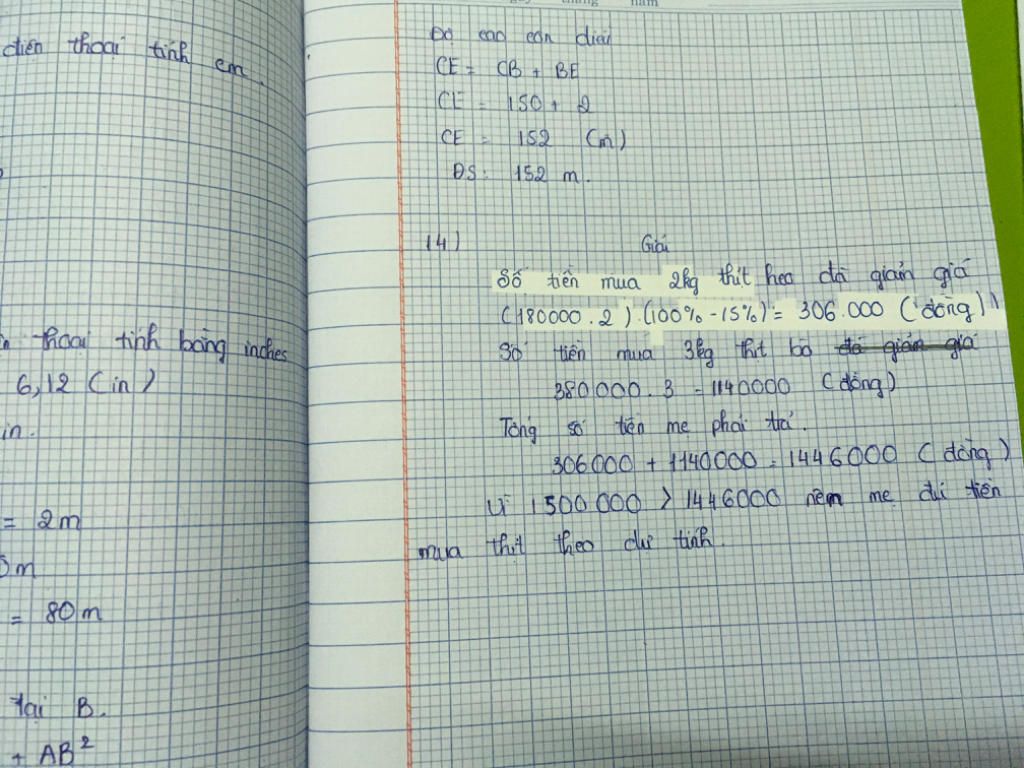 điện thoại tính em.
thoại tính bằng inches
6,12 (in)
in.
= 2m
m
= 80m
tại B.
+ AB²
tháng năm
Độ cao con diều
CE = CB + BE
CE = 150 + 2
CE = 152 (m)
ĐS: 152 m.
14) Giải
Số tiền mua 2kg thịt heo đã giảm giá
(180000.2).(100%-15%) = 306.000 (đồng)
Số tiền mua 3kg thịt bò đã giảm giá
380000.3 = 1140000 (đồng)
Tổng số tiền mẹ phải trả.
306000 + 1140000 = 1446000 (đồng)
Vì 1500000 > 1446000 nêm mẹ đủ tiền
mua thịt theo dự tính.